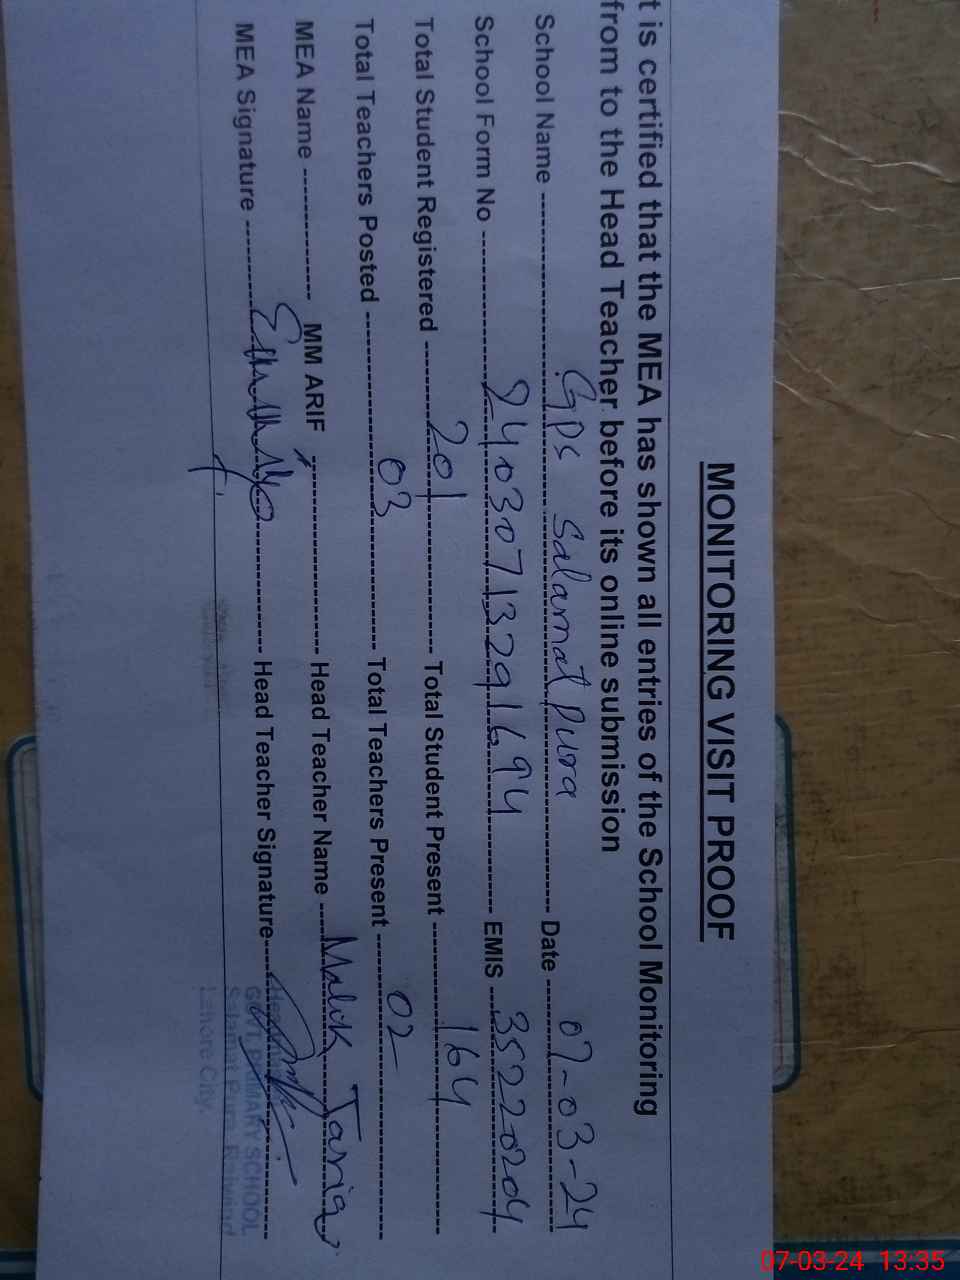 MONITORING VISIT PROOF
t is certified that the MEA has shown all entries of the School Monitoring
from to the Head Teacher before its online submission
School Name GPS Salamat Pura Date 07-03-24
School Form No 24030713291694 EMIS 35220204
Total Student Registered 201 Total Student Present 164
Total Teachers Posted 03 Total Teachers Present 02
MEA Name MM ARIF Head Teacher Name Malik Tariq
MEA Signature Head Teacher Signature
GOVT. PRIMARY SCHOOL
Salamat Pura Raiwind
Lahore City
07-03-24 13:35